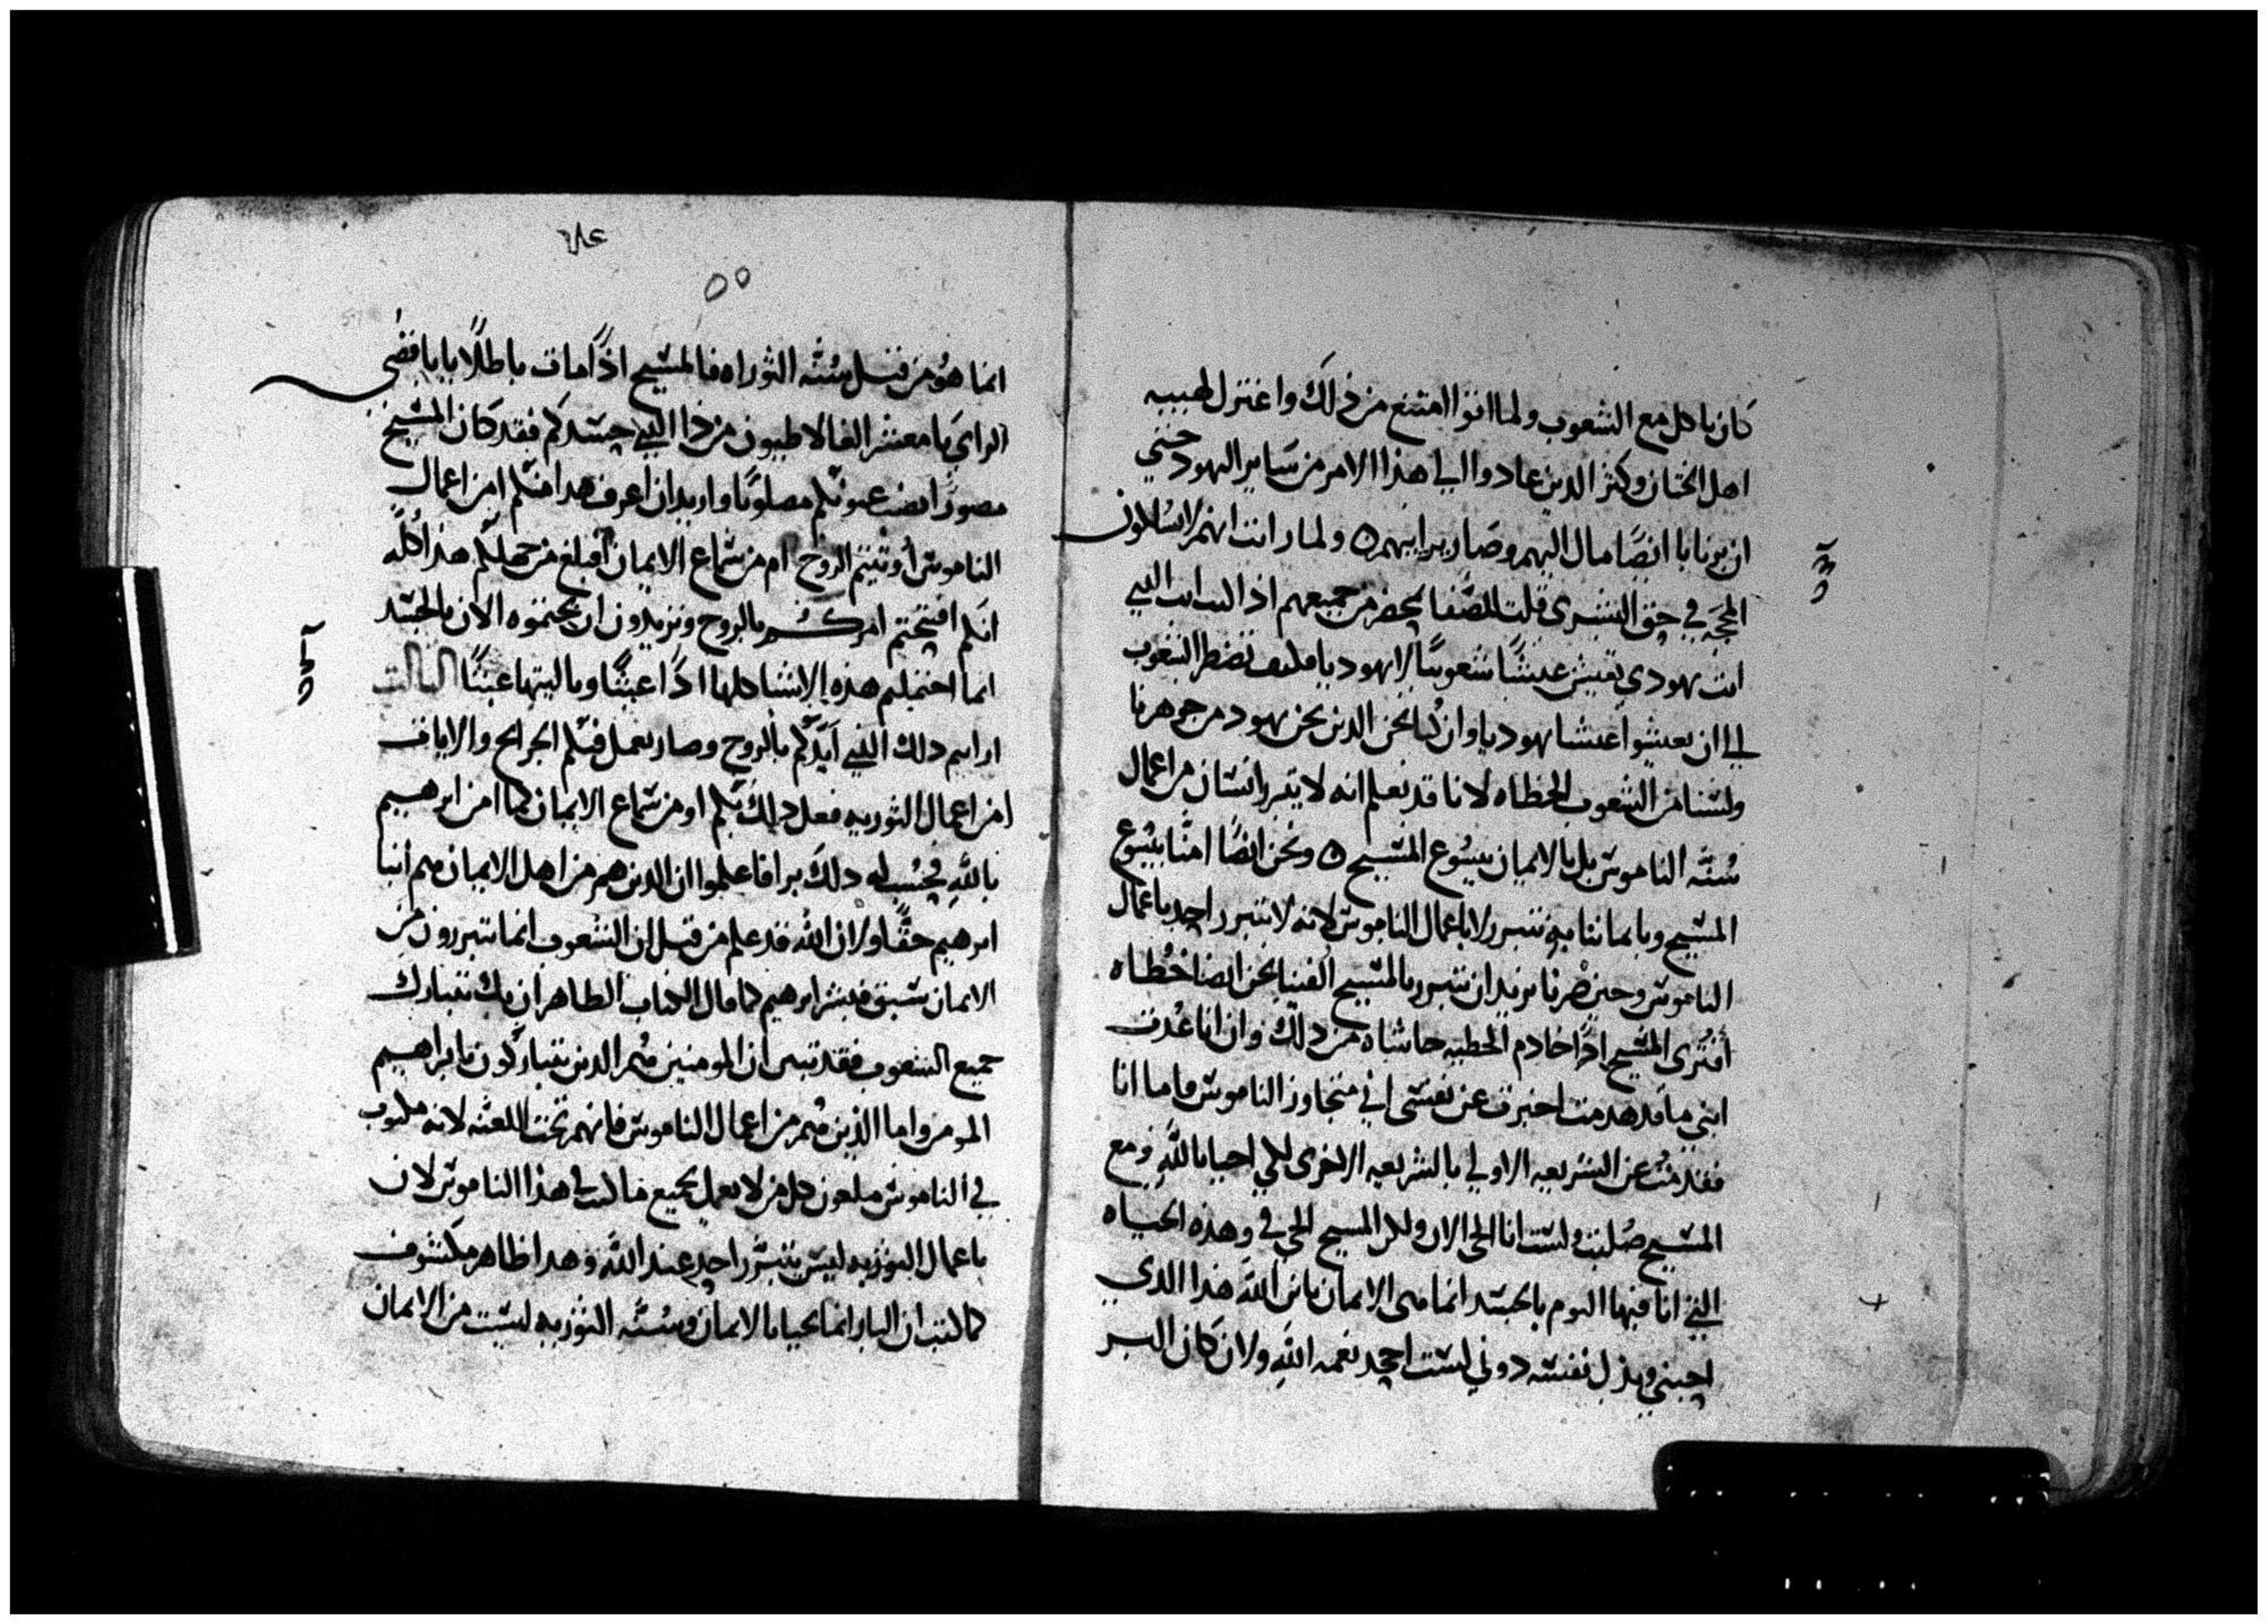 كان ياكل مع الشعوب ولما اتوا امتنع من ذلك واعتزل لهيبه
اهل الختان وكثر الدين عادوا الي هذا الامر من ساير اليهود حتي
ان برنابا ايضا مال اليهم وصار برايهم ولما رايت انهم لا يسلكون
المحجه في حق البشرى قلت للصفا بمحضر من جميعهم اذا كنت انت الدي
انت يهودي تعيش عيشا شعوبيا لا يهوديا فكيف تضطر الشعوب
الي ان يعيشوا عيشا يهوديا وان كنا نحن الدين نحن يهود من جوهرنا
ولسنا من الشعوب الخطاه لانا قد نعلم انه لا يتبرر انسان من اعمال
سنه الناموس بل بالايمان بيسوع المسيح ونحن ايضا امنا بيسوع
المسيح وبايماننا به نتبرر لا باعمال الناموس لانه لا يتبرر احد باعمال
الناموس وحين صرنا نريد ان نتبرر بالمسيح الفينا نحن ايضا خطاه
افترى المسيح اذا خادم الخطيه حاشاه من ذلك وان انا عدت
ابني ما قد هدمت اخبرت عن نفسي اني متجاوز الناموس فاما انا
فقد مت عن الشريعه الاولي بالشريعه الاخرى لكي احيا بالله ومع
المسيح صلبت ولست انا الحي الان ولكن المسيح الحي في وهذه الحياه
التي انا فيها اليوم بالجسد انما هي الايمان بابن الله هذا الدي
احبني وبذل نفسه دوني لست اجحد نعمه الله ولان كان البر
٥٥
انما هو من قبل سنه التوراه فالمسيح اذا مات باطلا يا ناقصي
الراي يا معشر الغالاطيون من ذا الدي حسدكم فقد كان المسيح
مصورا نصب عيونكم مصلوبا واريد ان اعرف هدا منكم امن اعمال
الناموس اوتيتم الروح ام من سماع الايمان افبلغ من جهلكم هذا كله
انكم افتتحتم امركم بالروح وتريدون ان تختموه الان بالجسد
انما احتملتم هذه الاشيا كلها اذا عبثا وياليتها عبثا
ارايتم دلك الذي ايدكم بالروح وصار يعمل فيكم الجرايح والايات
امن اعمال التوريه فعل ذلك بكم او من سماع الايمان كما امن ابرهيم
بالله فحسب له دلك برا فاعلموا ان الدين هم من اهل الايمان هم ابنا
ابرهيم حقا ولان الله قد علم من قبل ان الشعوب انما تتبررون من
الايمان سبق فبشر ابرهيم كما قال الكتاب الطاهر ان بك تتبارك
جميع الشعوب فقد تبين ان المومنين هم الدين يتباركون بابراهيم
المومن واما الذين هم من اعمال الناموس فانهم تحت اللعنه لانه مكتوب
في الناموس ملعون كل من لا يعمل بجميع ما كتب في هذا الناموس لان
باعمال التوريه ليس يتبرر احد عند الله وهدا ظاهر مكشوف
كما كتب ان البار انما يحيا بالايمان وسنه التوريه ليست من الايمان